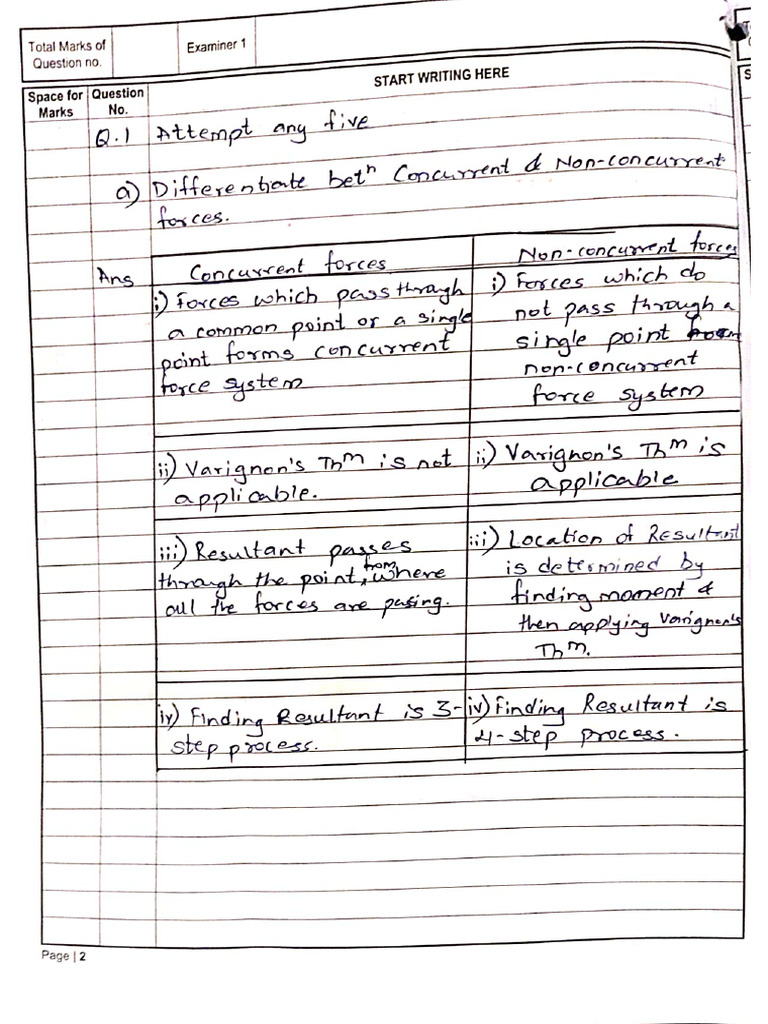 Total Marks of
Question no.
Examiner 1
START WRITING HERE
Space for
Marks
Question
No.
Q.1 Attempt any five
a) Differentiate betⁿ Concurrent & Non-concurrent
forces.
Ans
Concurrent forces
i) Forces which pass through
a common point or a single
point forms concurrent
force system
Non-concurrent forces
i) Forces which do
not pass through a
single point
non-concurrent
force system
ii) Varignon's Thᵐ is not
applicable.
ii) Varignon's Thᵐ is
applicable
iii) Resultant passes
through the point, from where
all the forces are pasing.
iii) Location of Resultant
is determined by
finding moment &
then applying Varignon's
Thᵐ.
iv) Finding Resultant is 3-
step process.
iv) Finding Resultant is
4-step process.
Page | 2